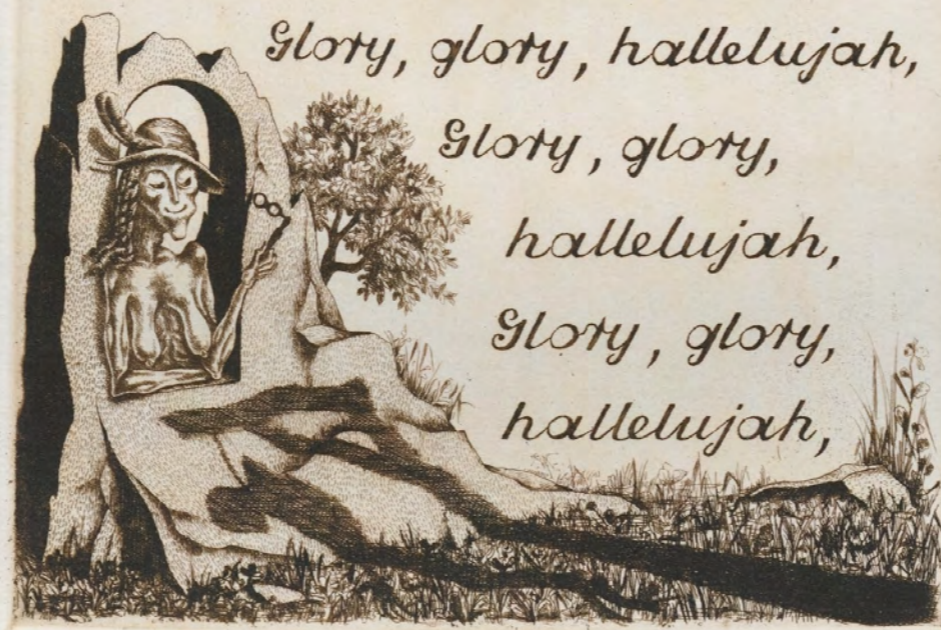 Glory, glory, hallelujah,
Glory, glory,
hallelujah,
Glory, glory,
hallelujah,